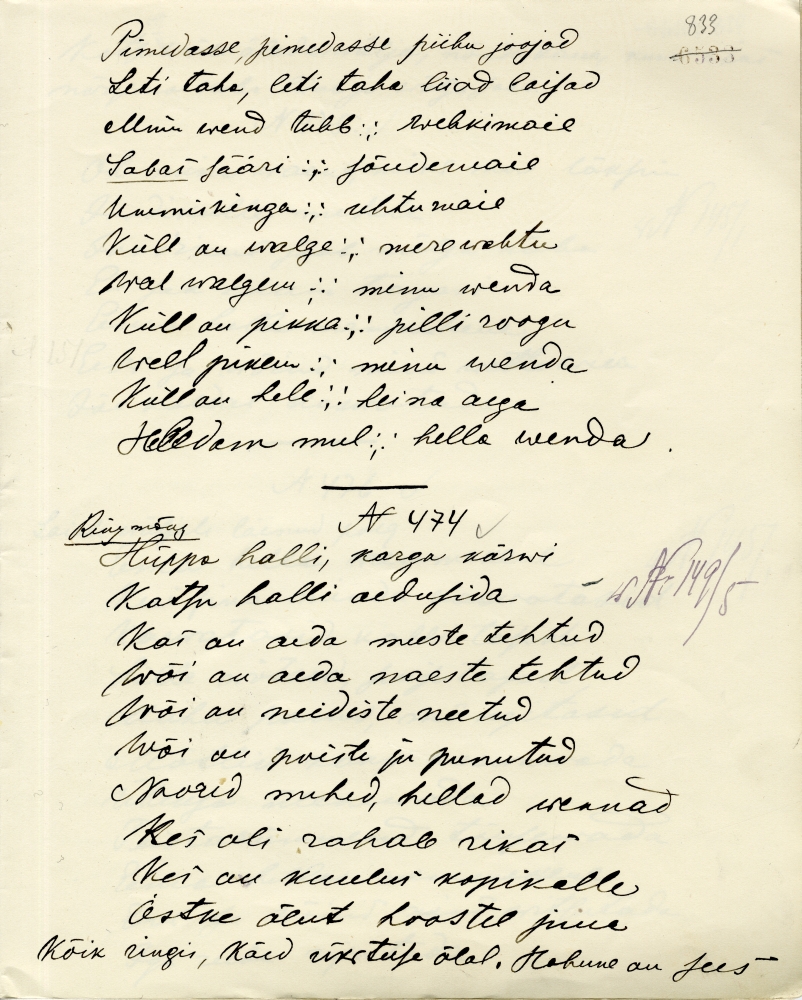 833
Pimedasse, pimedasse piibu joojad
Leti taha, leti taha liiad laisad
Minu wend tubb :,: wehkimaie
Sabas sääri :,: sõudemaie
Ummiskinga :,: uhtumaie
Küll on walge :,: merewahtu
Weel walgem :,: minu wenda
Küll on pikka :,: pilli roogu
Weel pikem :,: minu wenda
Küll on hele :,: heina aega
Heledam mul :,: hella wenda.
N 474
Ring mäng
Hüppa halli, karga kõrwi
Katsu halli aedusida
w Nr 149/5
Kas on aeda meeste tehtud
Wõi on aeda naeste tehtud
Wõi on neidiste neetud
Wõi on poiste ju punutud
Noored mehed, hellad wennad
Kes oli rahale rikas
Kes on kuulus kopikalle
Ostke õlut hoostel juua
Kõik ringis, Käed üksteise õlal. Hobune on sees